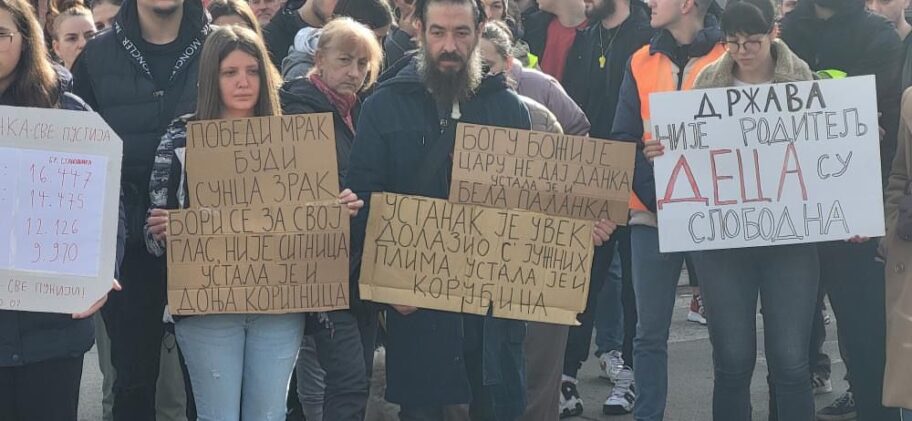 НКА-СВЕ ПУСТИЈА
БР. СТАНОВНИКА
16.447
14.475
12.126
9.970
СВЕ ПУНИЈИ!
MONCLER
ПОБЕДИ МРАК
БУДИ
СУНЦА ЗРАК
БОРИ СЕ ЗА СВОЈ
ГЛАС, НИЈЕ СИТНИЦА
УСТАЛА ЈЕ И
ДОЊА КОРИТНИЦА
БОГУ БОЖИЈЕ
ЦАРУ НЕ ДАЈ ДАНКА
УСТАЛА ЈЕ И
БЕЛА ПАЛАНКА
УСТАНАК ЈЕ УВЕК
ДОЛАЗИО С ЈУЖНИХ
ПЛИМА, УСТАЛА ЈЕ И
КОРУБИНА
ДРЖАВА
НИЈЕ РОДИТЕЉ
ДЕЦА СУ
СЛОБОДНА